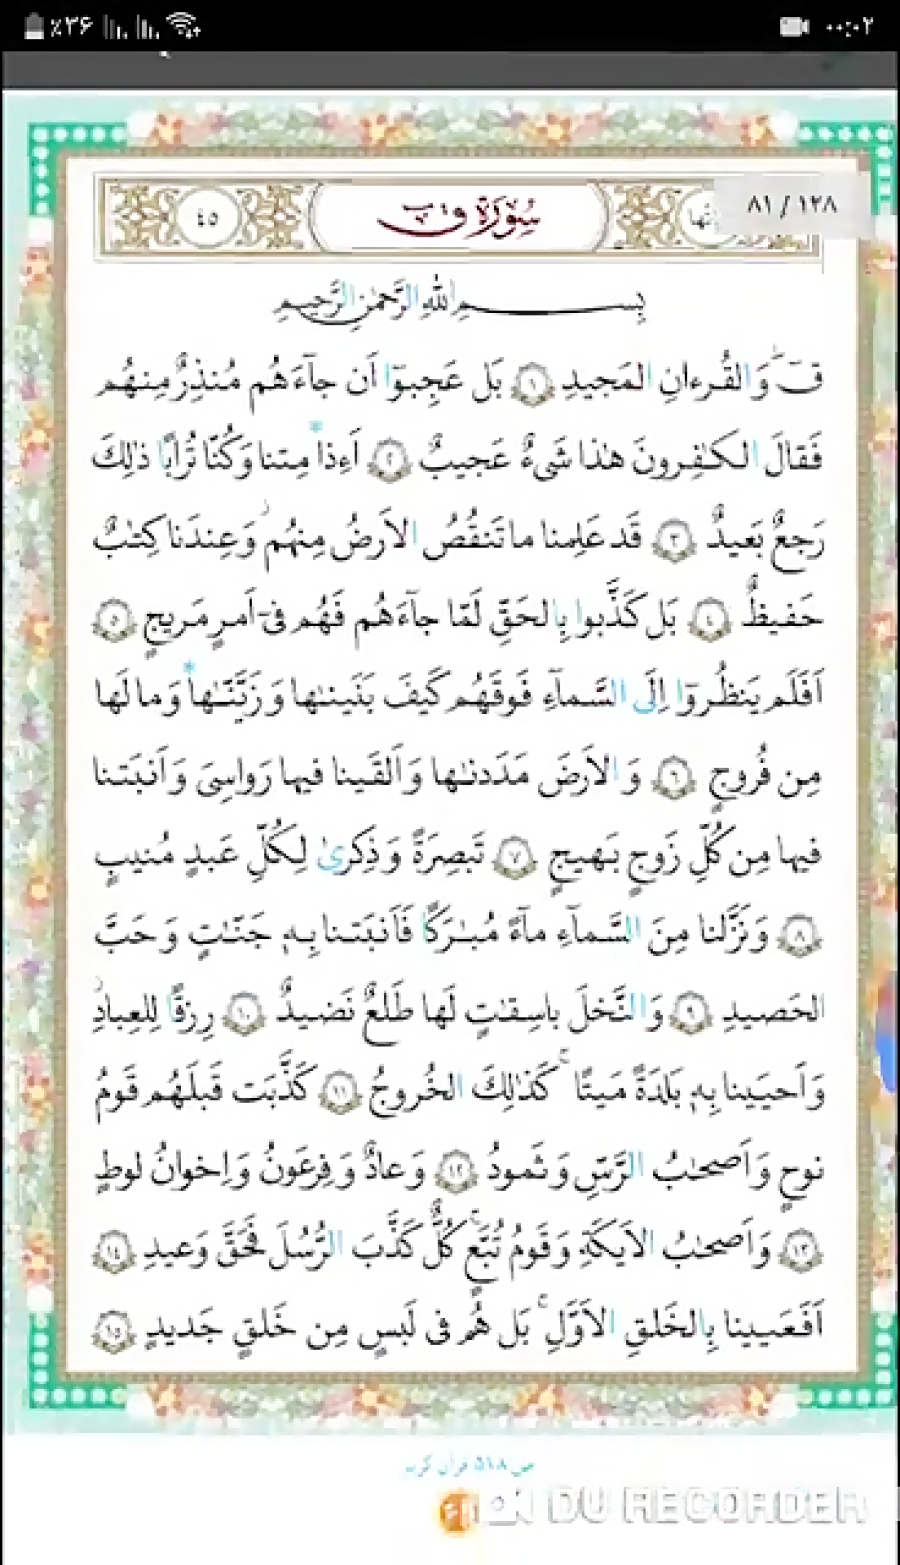 ٪۳۶ ۰۰:۰۲
۸۱ / ۱۲۸
سُورَةُ ق ٤٥
بِسمِ اللّٰهِ الرَّحمٰنِ الرَّحيمِ
قٓ ۚ وَالقُرءانِ المَجيدِ ﴿١﴾ بَل عَجِبوٓا اَن جآءَهُم مُنذِرٌ مِنهُم
فَقالَ الكٰفِرونَ هٰذا شَىءٌ عَجيبٌ ﴿٢﴾ اَءِذا مِتنا وَكُنّا تُرابًا ذٰلِكَ
رَجعٌ بَعيدٌ ﴿٣﴾ قَد عَلِمنا ما تَنقُصُ الاَرضُ مِنهُم ۖ وَعِندَنا كِتٰبٌ
حَفيظٌ ﴿٤﴾ بَل كَذَّبوا بِالحَقِّ لَمّا جآءَهُم فَهُم فىٓ اَمرٍ مَريجٍ ﴿٥﴾
اَفَلَم يَنظُروٓا اِلَى السَّمآءِ فَوقَهُم كَيفَ بَنَينٰها وَزَيَّنّٰها وَما لَها
مِن فُروجٍ ﴿٦﴾ وَالاَرضَ مَدَدنٰها وَاَلقَينا فيها رَواسِىَ وَاَنبَتنا
فيها مِن كُلِّ زَوجٍ بَهيجٍ ﴿٧﴾ تَبصِرَةً وَذِكرىٰ لِكُلِّ عَبدٍ مُنيبٍ
﴿٨﴾ وَنَزَّلنا مِنَ السَّمآءِ مآءً مُبٰرَكًا فَاَنبَتنا بِهٖ جَنّٰتٍ وَحَبَّ
الحَصيدِ ﴿٩﴾ وَالنَّخلَ باسِقٰتٍ لَها طَلعٌ نَضيدٌ ﴿١٠﴾ رِزقًا لِلعِبادِ ۖ
وَاَحيَينا بِهٖ بَلدَةً مَيتًا ۚ كَذٰلِكَ الخُروجُ ﴿١١﴾ كَذَّبَت قَبلَهُم قَومُ
نوحٍ وَاَصحٰبُ الرَّسِّ وَثَمودُ ﴿١٢﴾ وَعادٌ وَفِرعَونُ وَاِخوانُ لوطٍ
﴿١٣﴾ وَاَصحٰبُ الاَيكَةِ وَقَومُ تُبَّعٍ ۚ كُلٌّ كَذَّبَ الرُّسُلَ فَحَقَّ وَعيدِ ﴿١٤﴾
اَفَعَيينا بِالخَلقِ الاَوَّلِ ۚ بَل هُم فى لَبسٍ مِن خَلقٍ جَديدٍ ﴿١٥﴾
ص ۵۱۸ قرآن
DU RECORDER